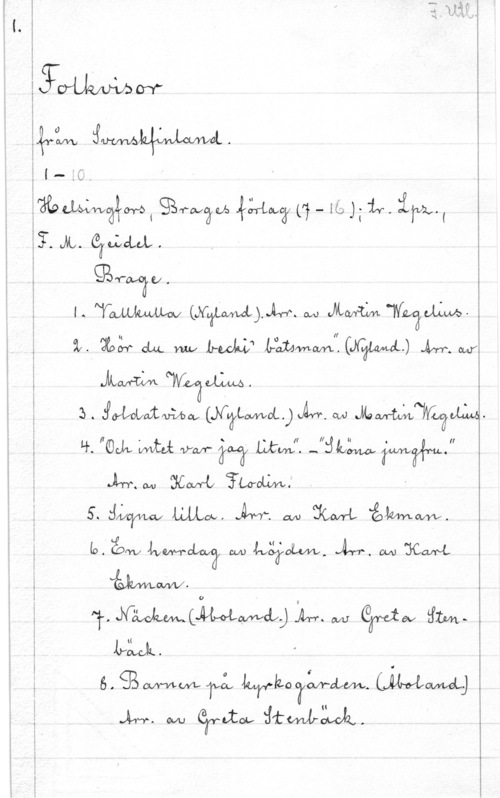 F. Utl.
I.
Folkvisor
från Svenskfinland.
1 - 10.
Helsingfors, Brages förlag (7 - 16); tr. Lpz.,
F. M. Geidel.
Brage.
1. Vallkulla (Nyland). Arr. av Martin Wegelius.
2. "Hör du nu becki' båtsman". (Nyland.) Arr. av
Martin Wegelius.
3. Soldatvisa (Nyland.) Arr. av Martin Wegelius.
4. "Och intet var jag liten". - "Sköna jungfru."
Arr. av Karl Flodin.
5. Signa lilla. Arr. av Karl Ekman.
6. En herrdag av höjden. Arr. av Karl
Ekman.
7. Näcken. (Åboland.) Arr. av Greta Sten-
bäck.
8. Barnen på kyrkogården. (Åboland.)
Arr. av Greta Stenbäck.